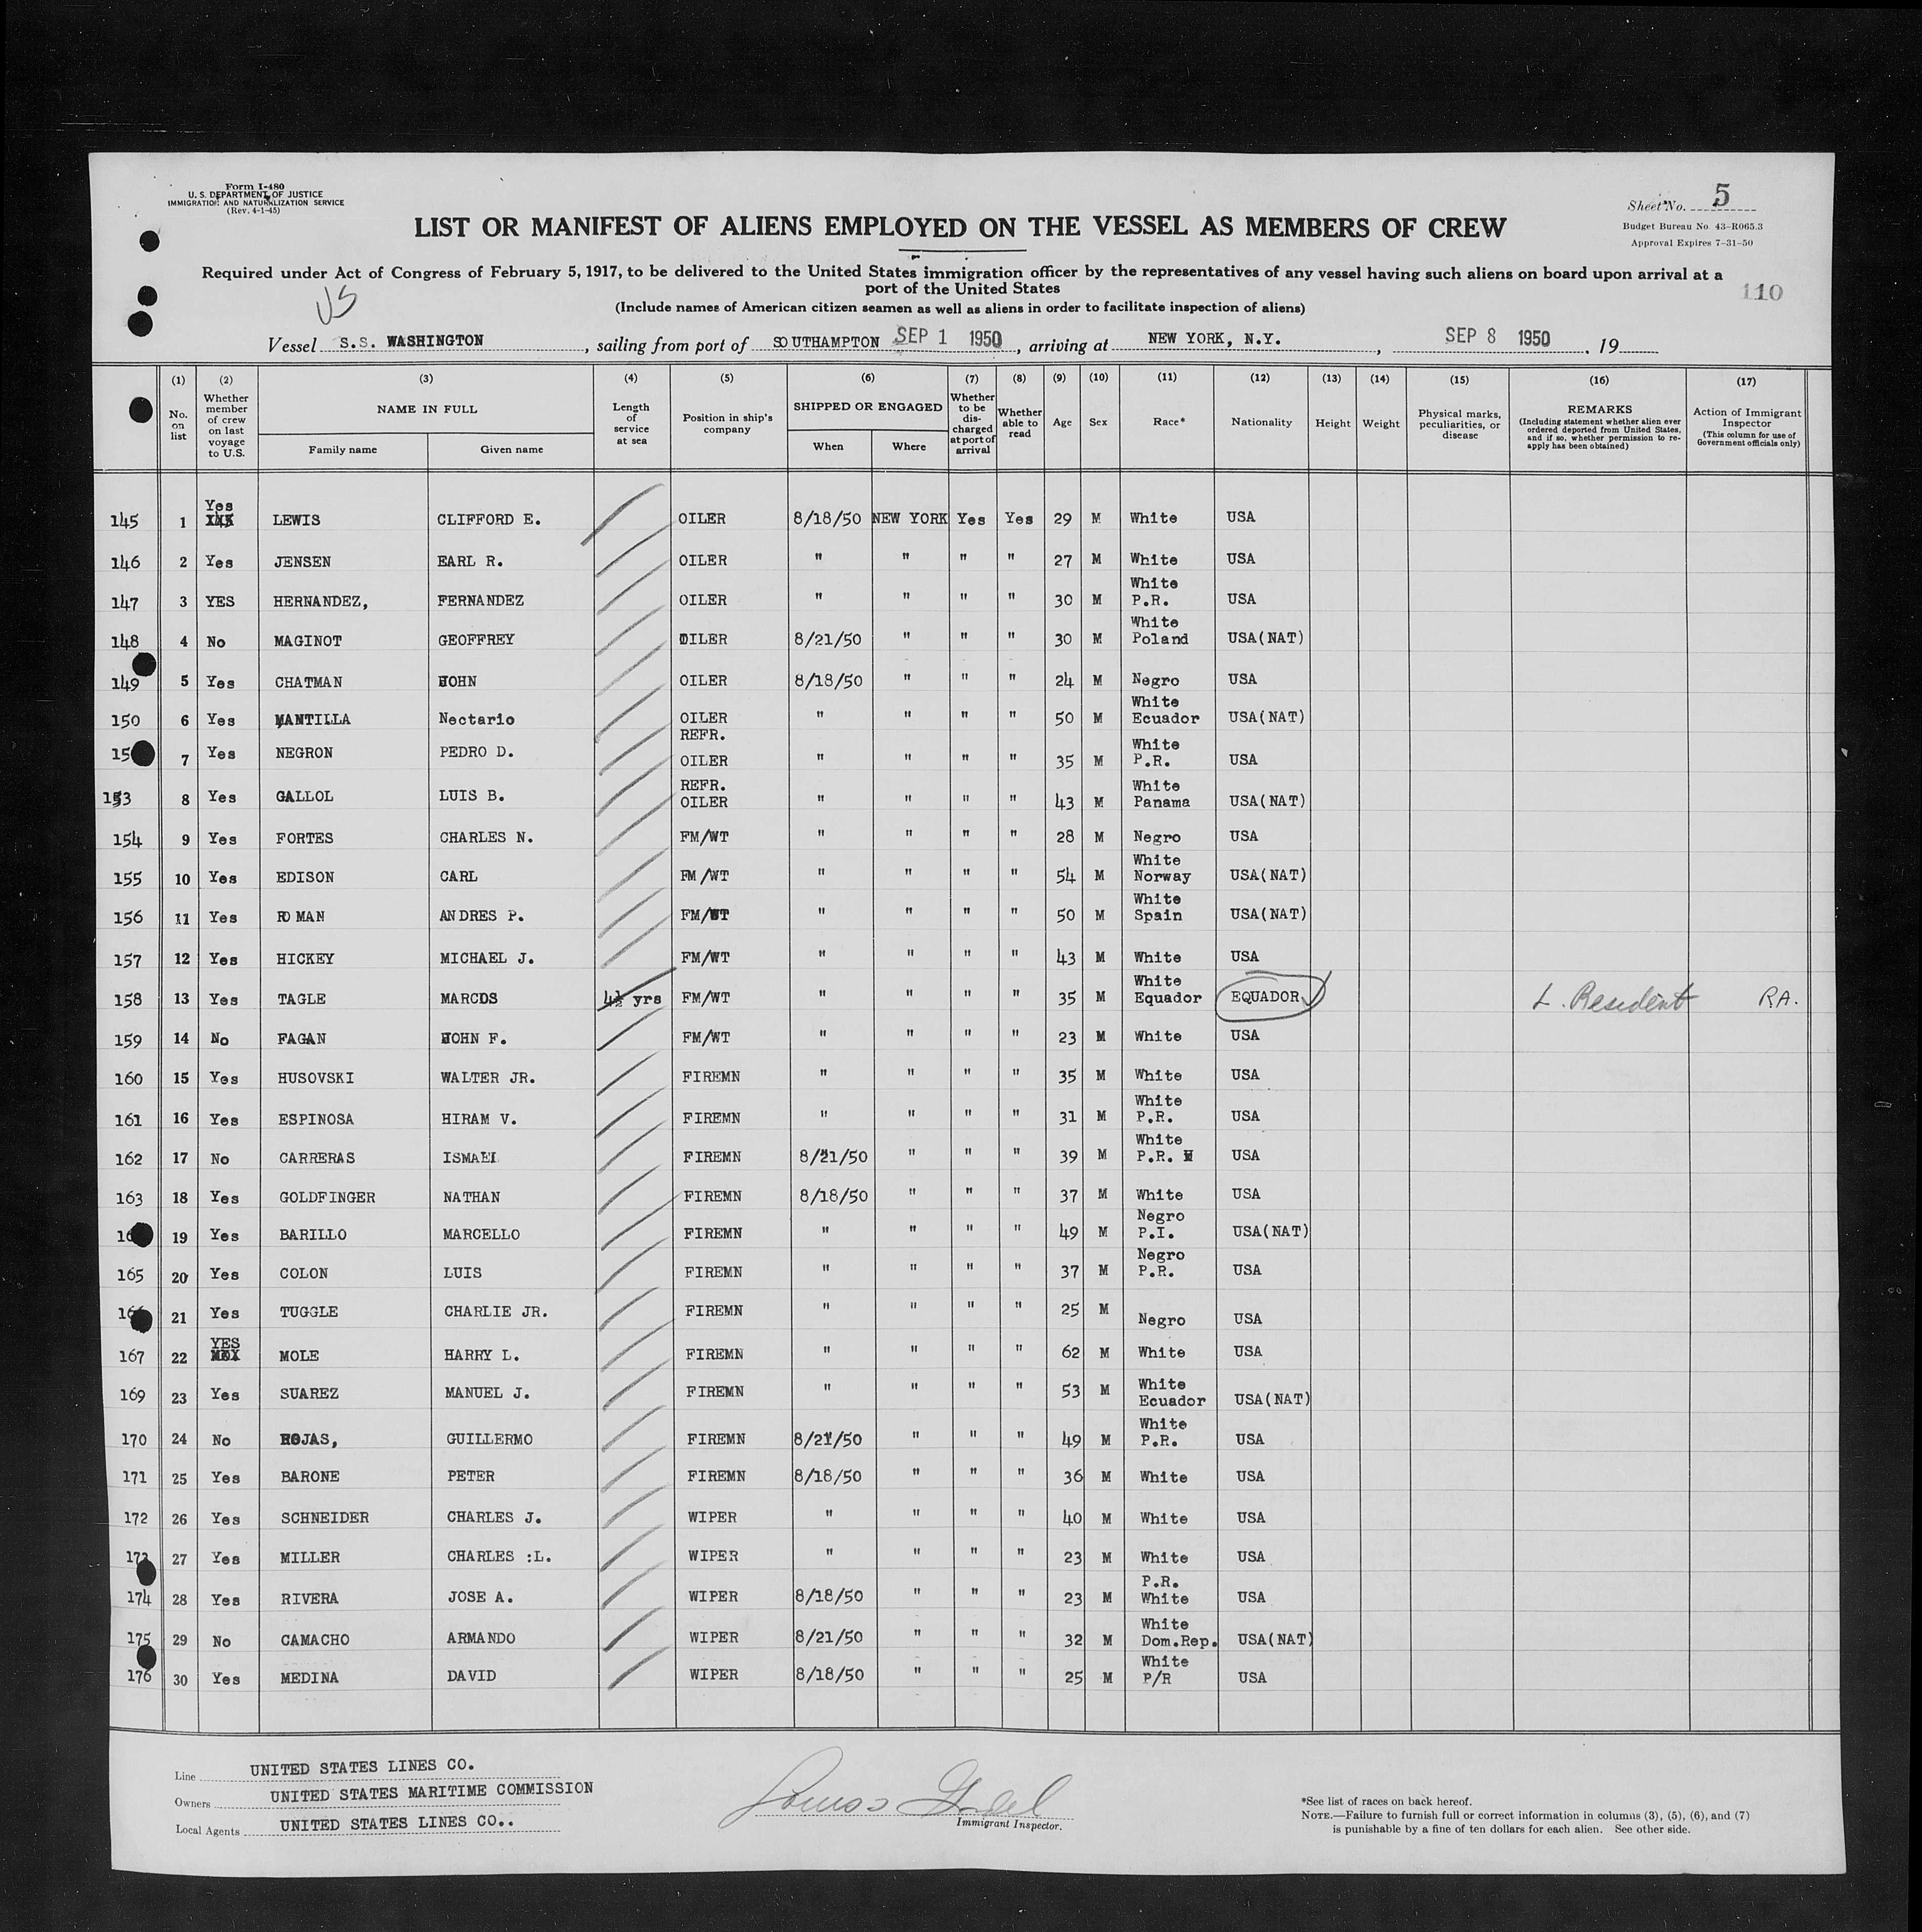 Form I-480
U. S. DEPARTMENT OF JUSTICE
IMMIGRATION AND NATURALIZATION SERVICE
(Rev. 4-1-45)
Sheet No. 5
Budget Bureau No. 43-R065.3
Approval Expires 7-31-50
LIST OR MANIFEST OF ALIENS EMPLOYED ON THE VESSEL AS MEMBERS OF CREW
Required under Act of Congress of February 5, 1917, to be delivered to the United States immigration officer by the representatives of any vessel having such aliens on board upon arrival at a
port of the United States
110
US
(Include names of American citizen seamen as well as aliens in order to facilitate inspection of aliens)
Vessel S.S. WASHINGTON, sailing from port of SOUTHAMPTON SEP 1 1950, arriving at NEW YORK, N.Y., SEP 8 1950, 19
(1) No. on list (2) Whether member of crew on last voyage to U.S. (3) NAME IN FULL Family name Given name (4) Length of service at sea (5) Position in ship's company (6) SHIPPED OR ENGAGED When Where (7) Whether to be discharged at port of arrival (8) Whether able to read (9) Age (10) Sex (11) Race* (12) Nationality (13) Height (14) Weight (15) Physical marks, peculiarities, or disease (16) REMARKS (Including statement whether alien ever ordered deported from United States, and if so, whether permission to reapply has been obtained) (17) Action of Immigrant Inspector (This column for use of Government officials only)
145 1 Yes LEWIS CLIFFORD E. OILER 8/18/50 NEW YORK Yes Yes 29 M White USA
146 2 Yes JENSEN EARL R. OILER " " " " 27 M White USA
147 3 YES HERNANDEZ, FERNANDEZ OILER " " " " 30 M White P.R. USA
148 4 No MAGINOT GEOFFREY OILER 8/21/50 " " " 30 M White Poland USA(NAT)
149 5 Yes CHATMAN JOHN OILER 8/18/50 " " " 24 M Negro USA
150 6 Yes MANTILLA Nectario OILER " " " " 50 M White Ecuador USA(NAT)
15 7 Yes NEGRON PEDRO D. REFR. OILER " " " " 35 M White P.R. USA
153 8 Yes GALLOL LUIS B. REFR. OILER " " " " 43 M White Panama USA(NAT)
154 9 Yes FORTES CHARLES N. FM/WT " " " " 28 M Negro USA
155 10 Yes EDISON CARL FM/WT " " " " 54 M White Norway USA(NAT)
156 11 Yes ROMAN ANDRES P. FM/WT " " " " 50 M White Spain USA(NAT)
157 12 Yes HICKEY MICHAEL J. FM/WT " " " " 43 M White USA
158 13 Yes TAGLE MARCOS 4½ yrs FM/WT " " " " 35 M White Equador EQUADOR L. Resident RA.
159 14 No FAGAN JOHN F. FM/WT " " " " 23 M White USA
160 15 Yes HUSOVSKI WALTER JR. FIREMN " " " " 35 M White USA
161 16 Yes ESPINOSA HIRAM V. FIREMN " " " " 31 M White P.R. USA
162 17 No CARRERAS ISMAEL FIREMN 8/21/50 " " " 39 M White P.R. USA
163 18 Yes GOLDFINGER NATHAN FIREMN 8/18/50 " " " 37 M White USA
16 19 Yes BARILLO MARCELLO FIREMN " " " " 49 M Negro P.I. USA(NAT)
165 20 Yes COLON LUIS FIREMN " " " " 37 M Negro P.R. USA
166 21 Yes TUGGLE CHARLIE JR. FIREMN " " " " 25 M Negro USA
167 22 YES MOLE HARRY L. FIREMN " " " " 62 M White USA
169 23 Yes SUAREZ MANUEL J. FIREMN " " " " 53 M White Ecuador USA(NAT)
170 24 No ROJAS, GUILLERMO FIREMN 8/21/50 " " " 49 M White P.R. USA
171 25 Yes BARONE PETER FIREMN 8/18/50 " " " 36 M White USA
172 26 Yes SCHNEIDER CHARLES J. WIPER " " " " 40 M White USA
173 27 Yes MILLER CHARLES :L. WIPER " " " " 23 M White USA
174 28 Yes RIVERA JOSE A. WIPER 8/18/50 " " " 23 M P.R. White USA
175 29 No CAMACHO ARMANDO WIPER 8/21/50 " " " 32 M White Dom.Rep. USA(NAT)
176 30 Yes MEDINA DAVID WIPER 8/18/50 " " " 25 M White P/R USA
Line UNITED STATES LINES CO.
Owners UNITED STATES MARITIME COMMISSION
Local Agents UNITED STATES LINES CO..
Immigrant Inspector.
*See list of races on back hereof.
NOTE.—Failure to furnish full or correct information in columns (3), (5), (6), and (7)
is punishable by a fine of ten dollars for each alien. See other side.